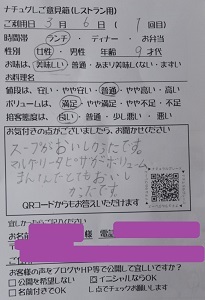 ナチュグレご意見箱(レストラン用)
ご利用日 3月6日(1回目)
時間帯 ランチ・ディナー・お弁当
性別 女性・男性 年齢 9才代
お味は、美味しい・普通・あまり美味しくない・まずい
お料理名
値段は、安い・やや安い・普通・やや高い・高い
ボリュームは、満足・やや満足・やや不足・不足
接客態度は、良い・普通・少し悪い・悪い
お気付きの点がございましたら、お聞かせください
スープがおいしかったです。
マルゲリータピザがボリューム
まんてんでとてもおいし
かったです
QRコードからもお答えいただけます
お名前 様 電話
ご住所
お客様の声をブログやHP等で公開して宜しいですか?
公開を希望しない イニシャルならOK
名前付きでOK し点でチェックお願いします